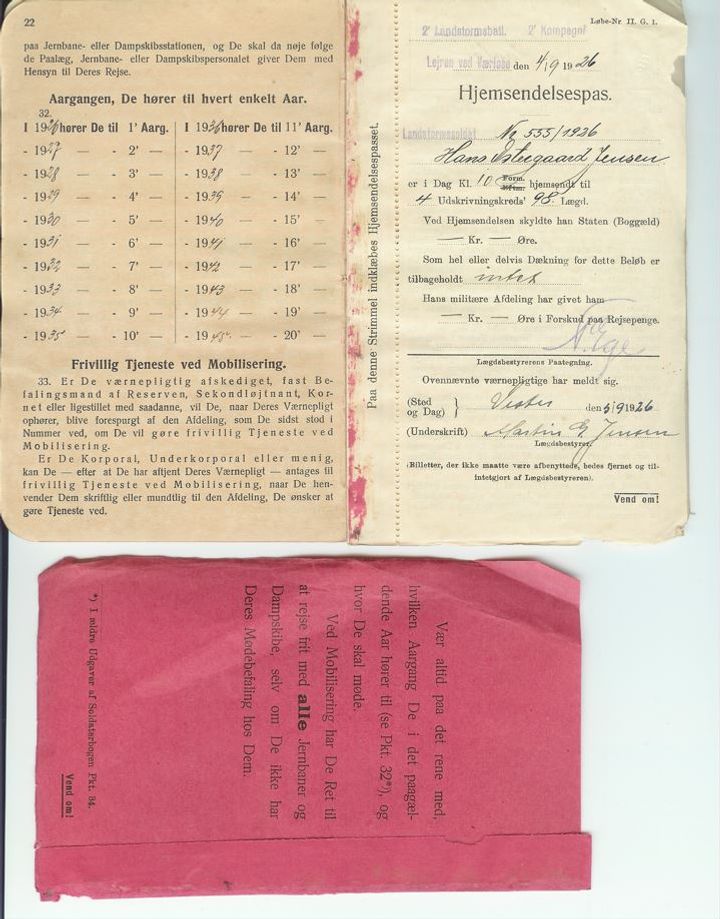 22
paa Jernbane- eller Dampskibsstationen, og De skal da nøje følge
de Paalæg, Jernbane- eller Dampskibspersonalet giver Dem med
Hensyn til Deres Rejse.
Aargangen, De hører til hvert enkelt Aar.
32.
I 1926 hører De til 1' Aarg.
- 1927 — - 2' —
- 1928 — - 3' —
- 1929 — - 4' —
- 1930 — - 5' —
- 1931 — - 6' —
- 1932 — - 7' —
- 1933 — - 8' —
- 1934 — - 9' —
- 1935 — - 10' —
I 1936 hører De til 11' Aarg.
- 1937 — - 12' —
- 1938 — - 13' —
- 1939 — - 14' —
- 1940 — - 15' —
- 1941 — - 16' —
- 1942 — - 17' —
- 1943 — - 18' —
- 1944 — - 19' —
- 1945 — - 20' —
Frivillig Tjeneste ved Mobilisering.
33. Er De værnepligtig afskediget, fast Be-
falingsmand af Reserven, Sekondløjtnant, Kor-
net eller ligestillet med saadanne, vil De, naar Deres Værnepligt
ophører, blive forespurgt af den Afdeling, som De sidst stod i
Nummer ved, om De vil gøre frivillig Tjeneste ved
Mobilisering.
Er De Korporal, Underkorporal eller menig,
kan De — efter at De har aftjent Deres Værnepligt — antages til
frivillig Tjeneste ved Mobilisering, naar De hen-
vender Dem skriftlig eller mundtlig til den Afdeling, De ønsker at
gøre Tjeneste ved.
Paa denne Strimmel indklæbes Hjemsendelsespasset.
Løbe-Nr. II. G. 1.
2' Landstormsbatl. 2' Kompagni
Lejren ved Værløse den 4/9 1926
Hjemsendelsespas.
Landstormssoldat No 555/1926
Hans Østergaard Jensen
er i Dag Kl. 10 Form. Eftm. hjemsendt til
4 Udskrivningskreds' 98. Lægd.
Ved Hjemsendelsen skyldte han Staten (Boggæld)
— Kr. — Øre.
Som hel eller delvis Dækning for dette Beløb er
tilbageholdt intet
Hans militære Afdeling har givet ham
— Kr. — Øre i Forskud paa Rejsepenge.
Lægdsbestyrerens Paategning.
Ovennævnte værnepligtige har meldt sig.
(Sted og Dag) } Vester den 5/9 1926
(Underskrift) Martin G. Jensen
Lægdsbestyrer.
(Billetter, der ikke maatte være afbenyttede, bedes fjernet og til-
intetgjort af Lægdsbestyreren).
Vend om!
Vær altid paa det rene med,
hvilken Aargang De i det paagæl-
dende Aar hører til (se Pkt. 32*), og
hvor De skal møde.
Ved Mobilisering har De Ret til
at rejse frit med alle Jernbaner og
Dampskibe, selv om De ikke har
Deres Mødebefaling hos Dem.
*) I ældre Udgaver af Soldaterbogen Pkt. 34.
Vend om!